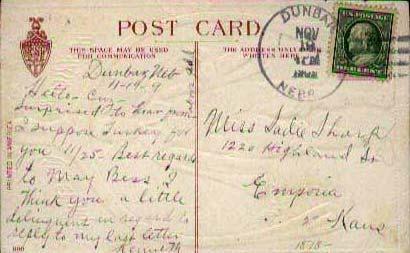 POST CARD
THIS SPACE MAY BE USED
FOR COMMUNICATION
THE ADDRESS ONLY
Dunbar Neb
11-19-9
Hello Cuz
Surprised to hear from
I suppose turkey for
you 11/25- Best regards
to May Bess. I
think you a little
delinquent in regard to
reply to my last letter
Kenneth
PRINTED IN AMERICA
DUNBAR
NOV
NEBR.
Miss Sadie Sharp
1220 Highland
Emporia
Kans